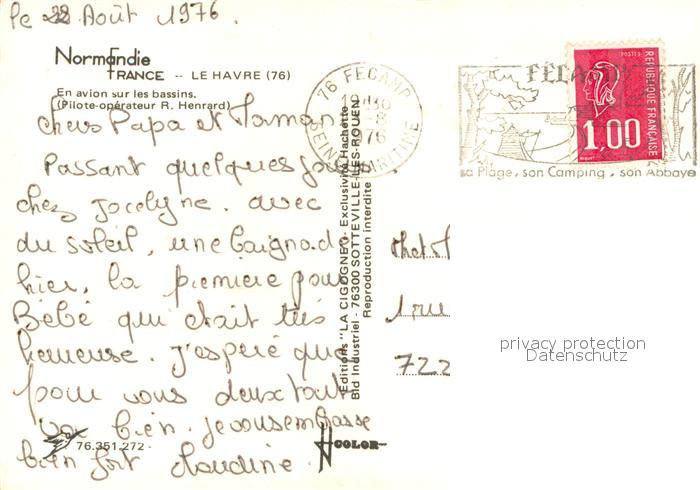 le 22 Août 1976.
Normandie
FRANCE -- LE HAVRE (76)
En avion sur les bassins.
(Pilote-opérateur R. Henrard)
chers Papa et Maman
Passant quelques jours
chez Jocelyne. avec
du soleil, une baignade
hier, la première pour
Bébé qui était très
heureuse. j'espère que
pour vous deux tout
va bien. je vous embrasse
bien fort Claudine.
76.351.272 -
Editions "LA CIGOGNE" - Exclusivité Hachette
Bld Industriel - 76300 SOTTEVILLE-LES-ROUEN
Reproduction interdite
COLOR
76 FECAMP
SEINE MARITIME
-8
1976
FÉCAMP
sa Plage, son Camping, son Abbaye
POSTES
REPUBLIQUE FRANÇAISE
1,00
1 rue
722
privacy protection
Datenschutz